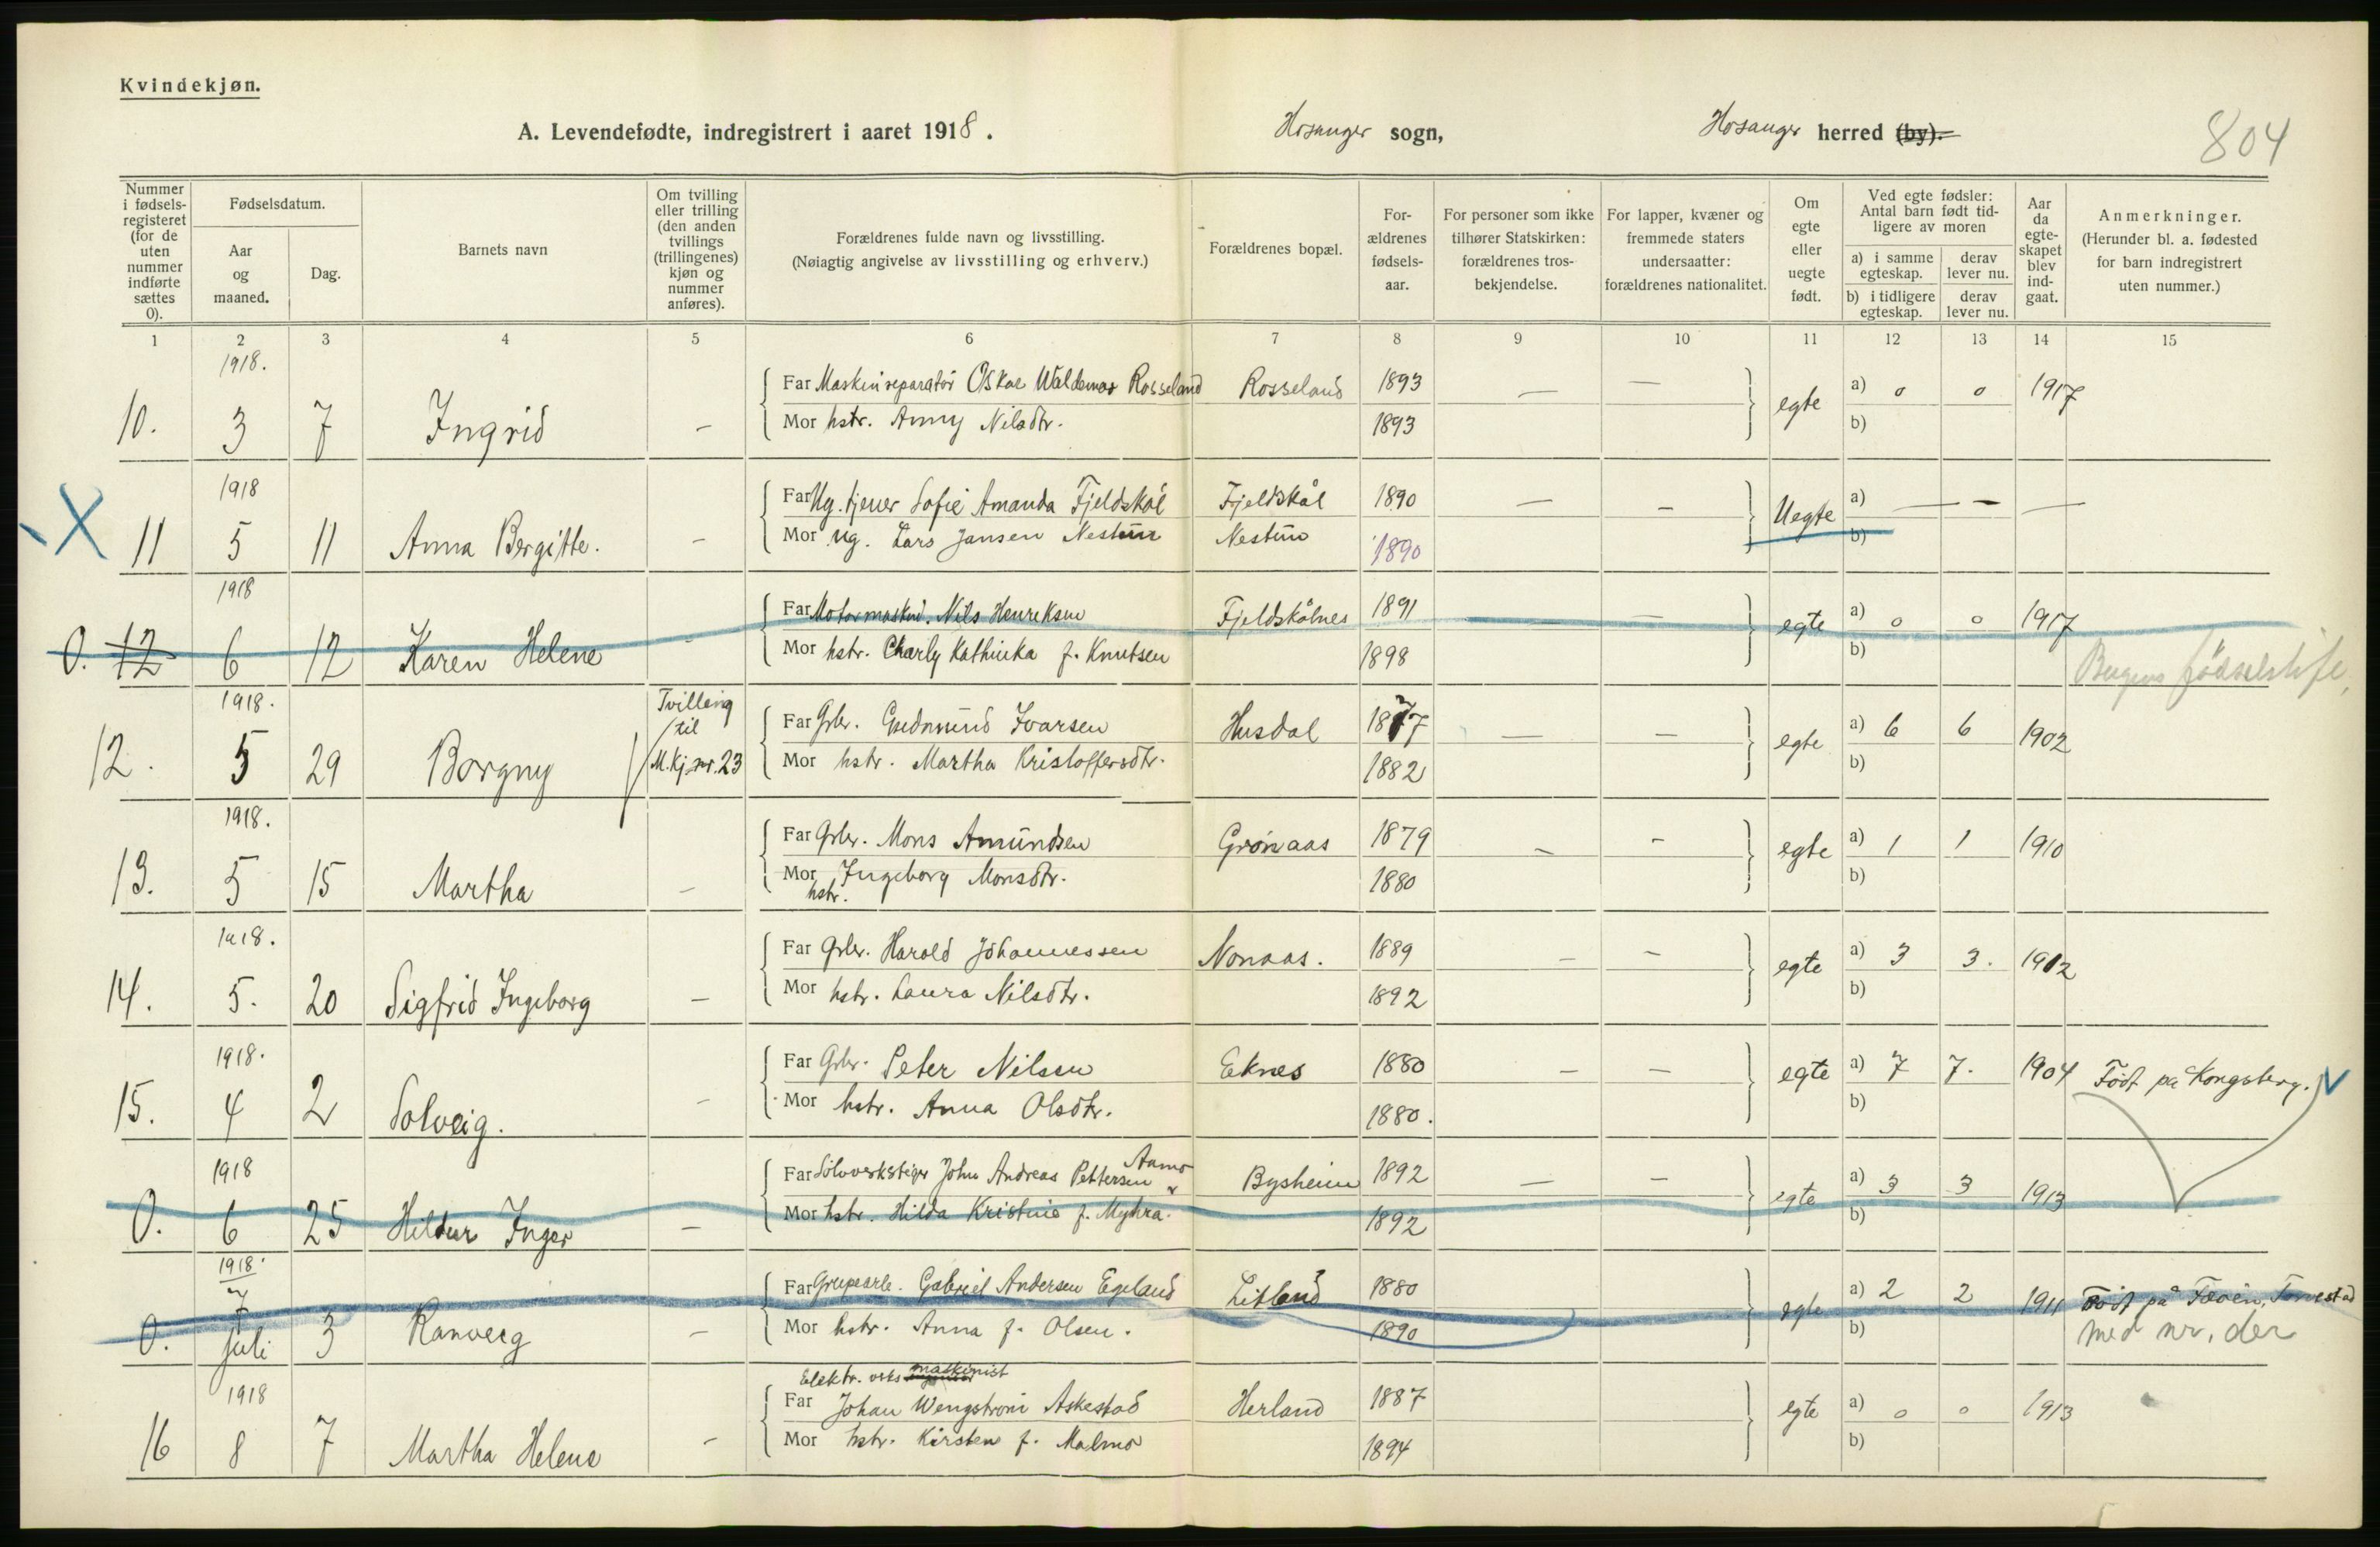 Kvindekjøn.
A. Levendefødte, indregistrert i aaret 1918. Hosanger sogn, Hosanger herred (by).
804
Nummer i fødsels-registeret (for de uten nummer indførte sættes 0).
Fødselsdatum.
Aar og maaned.
Dag.
Barnets navn
Om tvilling eller trilling (den anden tvillings (trillingenes) kjøn og nummer anføres).
Forældrenes fulde navn og livsstilling.
(Nøiagtig angivelse av livsstilling og erhverv.)
Forældrenes bopæl.
For-ældrenes fødsels-aar.
For personer som ikke tilhører Statskirken: forældrenes tros-bekjendelse.
For lapper, kvæner og fremmede staters undersaatter: forældrenes nationalitet.
Om egte eller uegte født.
Ved egte fødsler: Antal barn født tid-ligere av moren
a) i samme egteskap.
derav lever nu.
b) i tidligere egteskap.
derav lever nu.
Aar da egte-skapet blev ind-gaat.
Anmerkninger.
(Herunder bl. a. fødested for barn indregistrert uten nummer.)
1 2 3 4 5 6 7 8 9 10 11 12 13 14 15
1918.
10. 3 7 Ingrid -
Far Maskinreparatör Oskar Waldemar Rosseland Rosseland 1893 — — egte a) 0 0 1917
Mor hstr. Anny Nilsdtr. 1893 b)
1918
X 11 5 11 Anna Bergitte. -
Far Ug. tjener Sofie Amanda Fjeldskål Fjeldskål 1890 — — Uegte a) — — —
Mor ug. Lars Jansen Nestun Nestun 1890 b)
1918
0. 12 6 12 Karen Helene -
Far Motormaskin. Nils Henriksen Fjeldskålnes 1891 — — egte a) 0 0 1917
Mor hstr. Charly Kathinka f. Knutsen 1898 b)
Bergens fødselstift.
1918.
12. 5 29 Borgny
Tvilling til M.kj. nr. 23
Far Grbr. Gudmund Ivarsen Husdal 1877 — — egte a) 6 6 1902
Mor hstr. Martha Kristoffersdtr. 1882 b)
1918.
13. 5 15 Martha -
Far Grbr. Mons Amundsen Grønaas 1879 - - egte a) 1 1 1910
Mor hstr. Ingeborg Monsdtr. 1880 b)
1918.
14. 5. 20 Sigfrid Ingeborg -
Far Grbr. Harald Johannessen Nonaas. 1889 - - egte a) 3 3. 1912
Mor hstr. Laura Nilsdtr. 1892 b)
1918.
15. 4 2 Solveig. -
Far Grbr. Peter Nilsen Eknes 1880 - - egte a) 7 7. 1904 Født på Kongsberg.
Mor hstr. Anna Olsdtr. 1880. b)
1918
0. 6 25 Hildur Inger -
Far Sølvverkstiger John Andreas Pettersen Aamo Bysheim 1892 — — egte a) 3 3 1913
Mor hstr. Hilda Kristine f. Myhra. 1892 b)
1918.
0. 7 juli 3 Ranveig -
Far Grupearb. Gabriel Andersen Egeland Litland 1880 egte a) 2 2 1911 Født på
Mor hstr. Anna f. Olsen. 1890 b) med nr. der
1918
16 8 7 Martha Helene -
Elektr. verks maskinist
Far Johan Wengstrom Askestad Herland 1887 egte a) 0 0 1913
Mor hstr. Kirsten f. Malmo 1894 b)